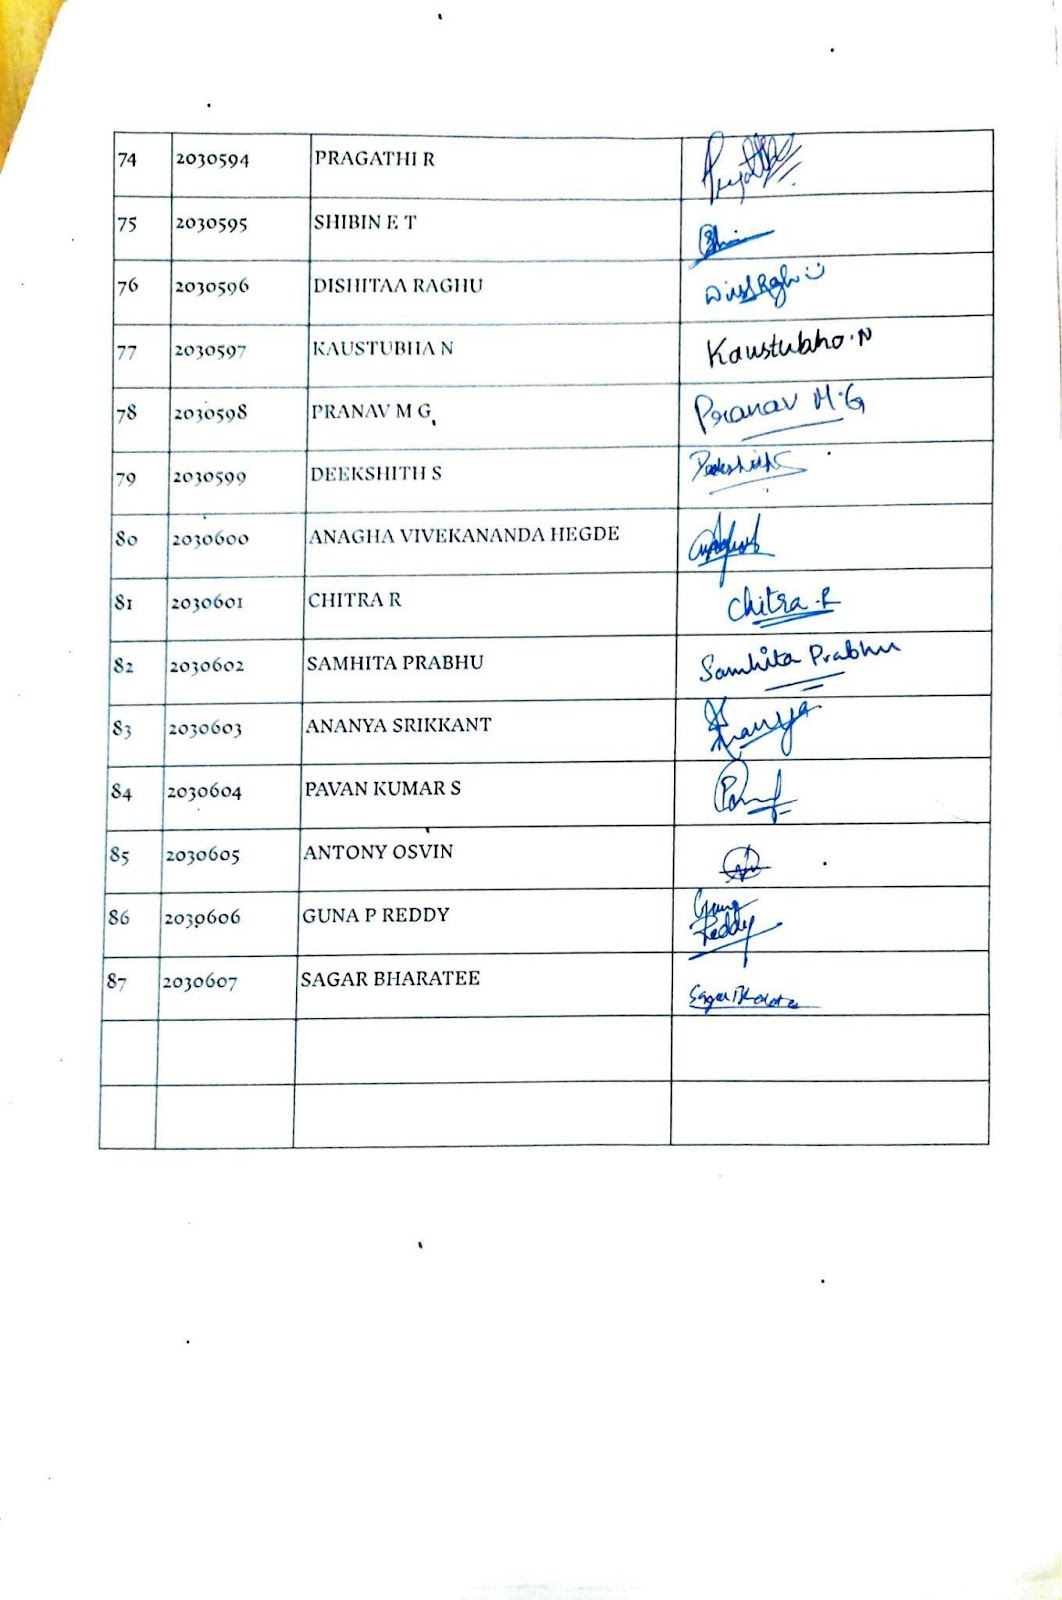 74 2030594 PRAGATHI R
75 2030595 SHIBIN E T
76 2030596 DISHITAA RAGHU
77 2030597 KAUSTUBHA N Kaustubha.N
78 2030598 PRANAV M G Pranav M.G
79 2030599 DEEKSHITH S Deekshith S
80 2030600 ANAGHA VIVEKANANDA HEGDE
81 2030601 CHITRA R Chitra.R
82 2030602 SAMHITA PRABHU Samhita Prabhu
83 2030603 ANANYA SRIKKANT Ananya
84 2030604 PAVAN KUMAR S
85 2030605 ANTONY OSVIN
86 2030606 GUNA P REDDY Guna
Reddy
87 2030607 SAGAR BHARATEE